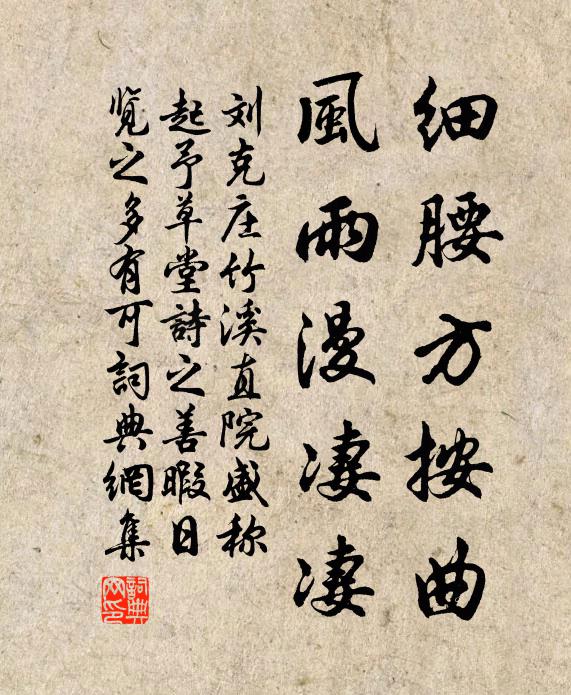 细腰方按曲
風雨漫凄凄
刘克庄竹溪直院盛称
起予草堂詩之善暇日
览之多有可詞典網集
詞典网印